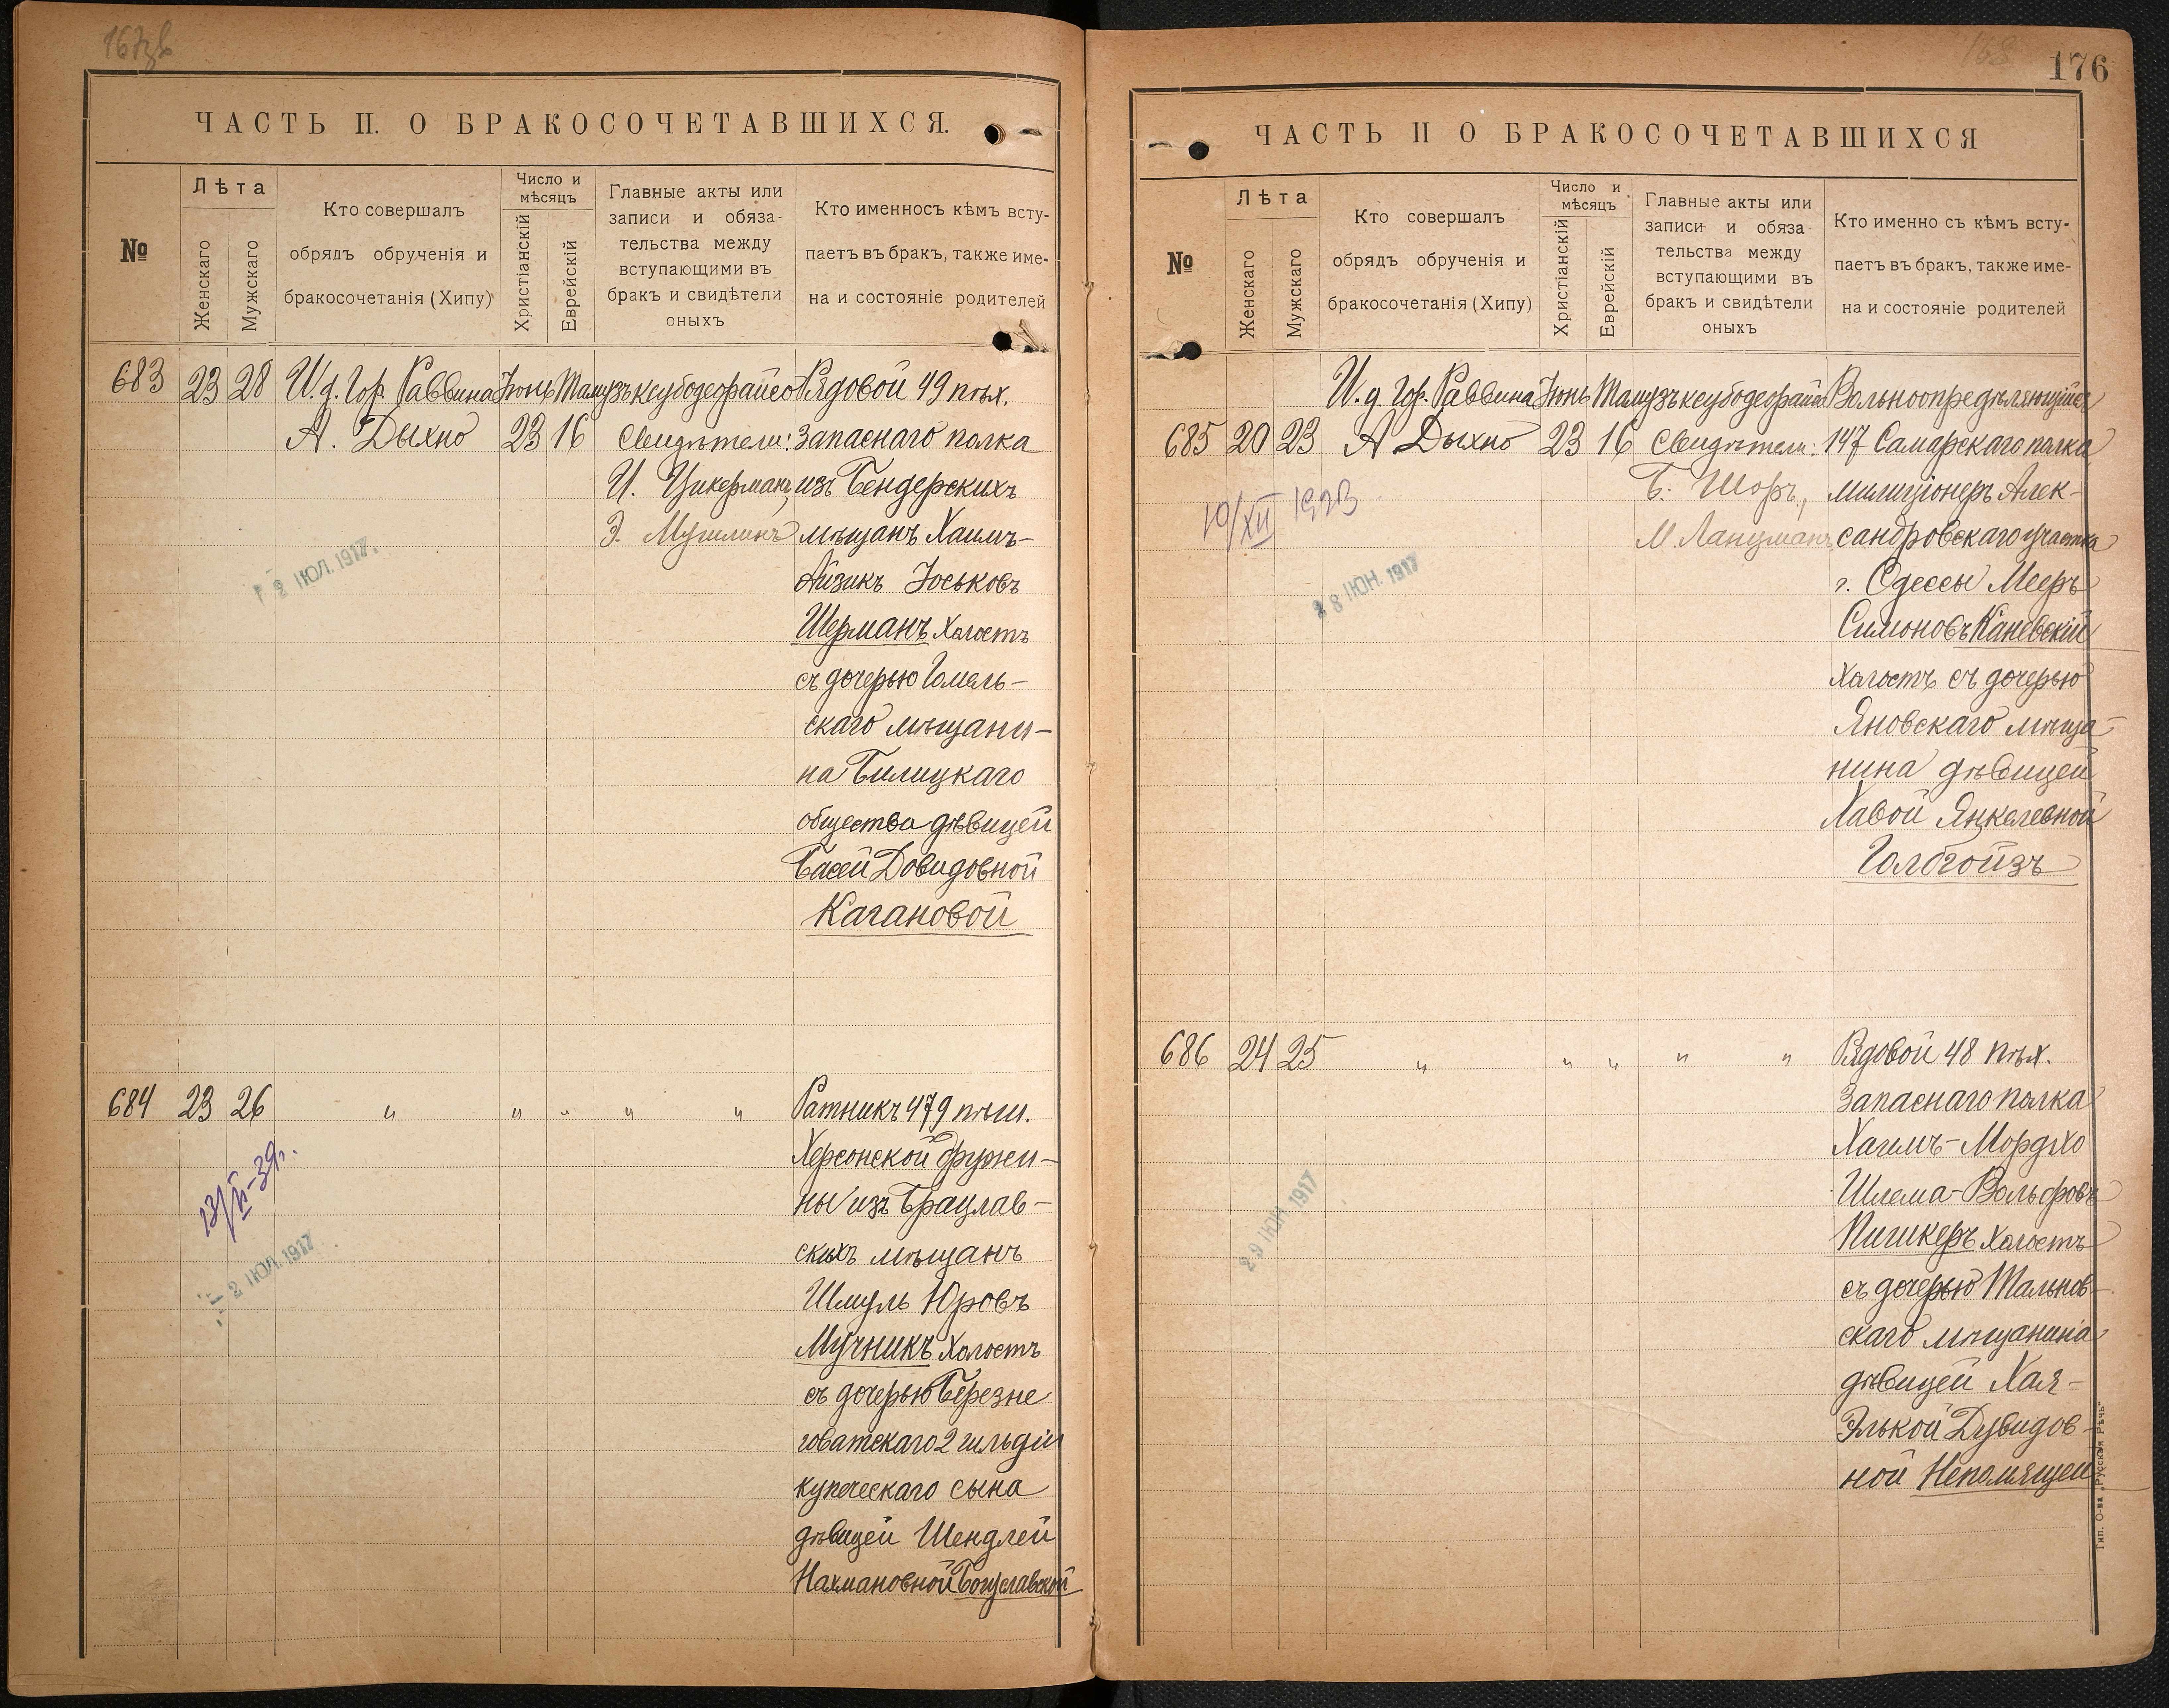 ЧАСТЬ II. О БРАКОСОЧЕТАВШИХСЯ.
№
Лѣта
Женскаго
Мужскаго
Кто совершалъ
обрядъ обрученія и
бракосочетанія (Хипу)
Число и
мѣсяцъ
Христіанскій
Еврейскій
Главные акты или
записи и обяза-
тельства между
вступающими въ
бракъ и свидѣтели
оныхъ
Кто именносъ кѣмъ всту-
паетъ въ бракъ, также име-
на и состояніе родителей
683 23 28 И. д. Гор. Раввина Іюнь Тамузъ ксубодеорайсо Рядовой 49 пѣх.
А. Дыхно 23 16 Свидѣтели: запаснаго полка
И. Цикерманъ, изъ Бендерскихъ
Э. Мушлинъ мѣщанъ Хаимъ-
Айзикъ Іоськовъ
Шерманъ холостъ
съ дочерью Гомель-
скаго мѣщани-
на Билицкаго
общества дѣвицей
Басей Довидовной
Кагановой
2 ІЮЛ. 1917
684 23 26 " " " " " Ратникъ 479 пѣш.
Херсонской дружи-
ны изъ Брацлав-
скихъ мѣщанъ
Шмуль Юровъ
Мучникъ холостъ
съ дочерью Березне
говатскаго 2 гильдіи
купеческаго сына
дѣвицей Шендлей
Нахмановной Богуславской
2 ІЮЛ. 1917
176
ЧАСТЬ II О БРАКОСОЧЕТАВШИХСЯ
№
Лѣта
Женскаго
Мужскаго
Кто совершалъ
обрядъ обрученія и
бракосочетанія (Хипу)
Число и
мѣсяцъ
Христіанскій
Еврейскій
Главные акты или
записи и обяза-
тельства между
вступающими въ
бракъ и свидѣтели
оныхъ
Кто именно съ кѣмъ всту-
паетъ въ бракъ, также име-
на и состояніе родителей
И. д. Гор. Раввина Іюнь Тамузъ ксубодеорайсо Вольноопредѣляющійся
685 20 23 А Дыхно 23 16 Свидѣтели: 147 Самарскаго полка
Б. Шоръ, милиціонеръ Алек-
М. Ланцманъ сандровскаго участка
г. Одессы Мееръ
Симоновъ Каневскій
холостъ съ дочерью
Яновскаго мѣща-
нина дѣвицей
Хавой Янкелевной
Голбгойзъ
10/XII 1923
28 ІЮН. 1917
686 24 25 " " " " " Рядовой 48 пѣх.
запаснаго полка
Хаимъ-Мордхо
Шлема-Вольфовъ
Пишкеръ холостъ
съ дочерью Тальнов-
скаго мѣщанина
дѣвицей Хая-
Элькой Дувидов-
ной Непомящей
29 ІЮН 1917
Тип. О-ва „Русская Рѣчь"